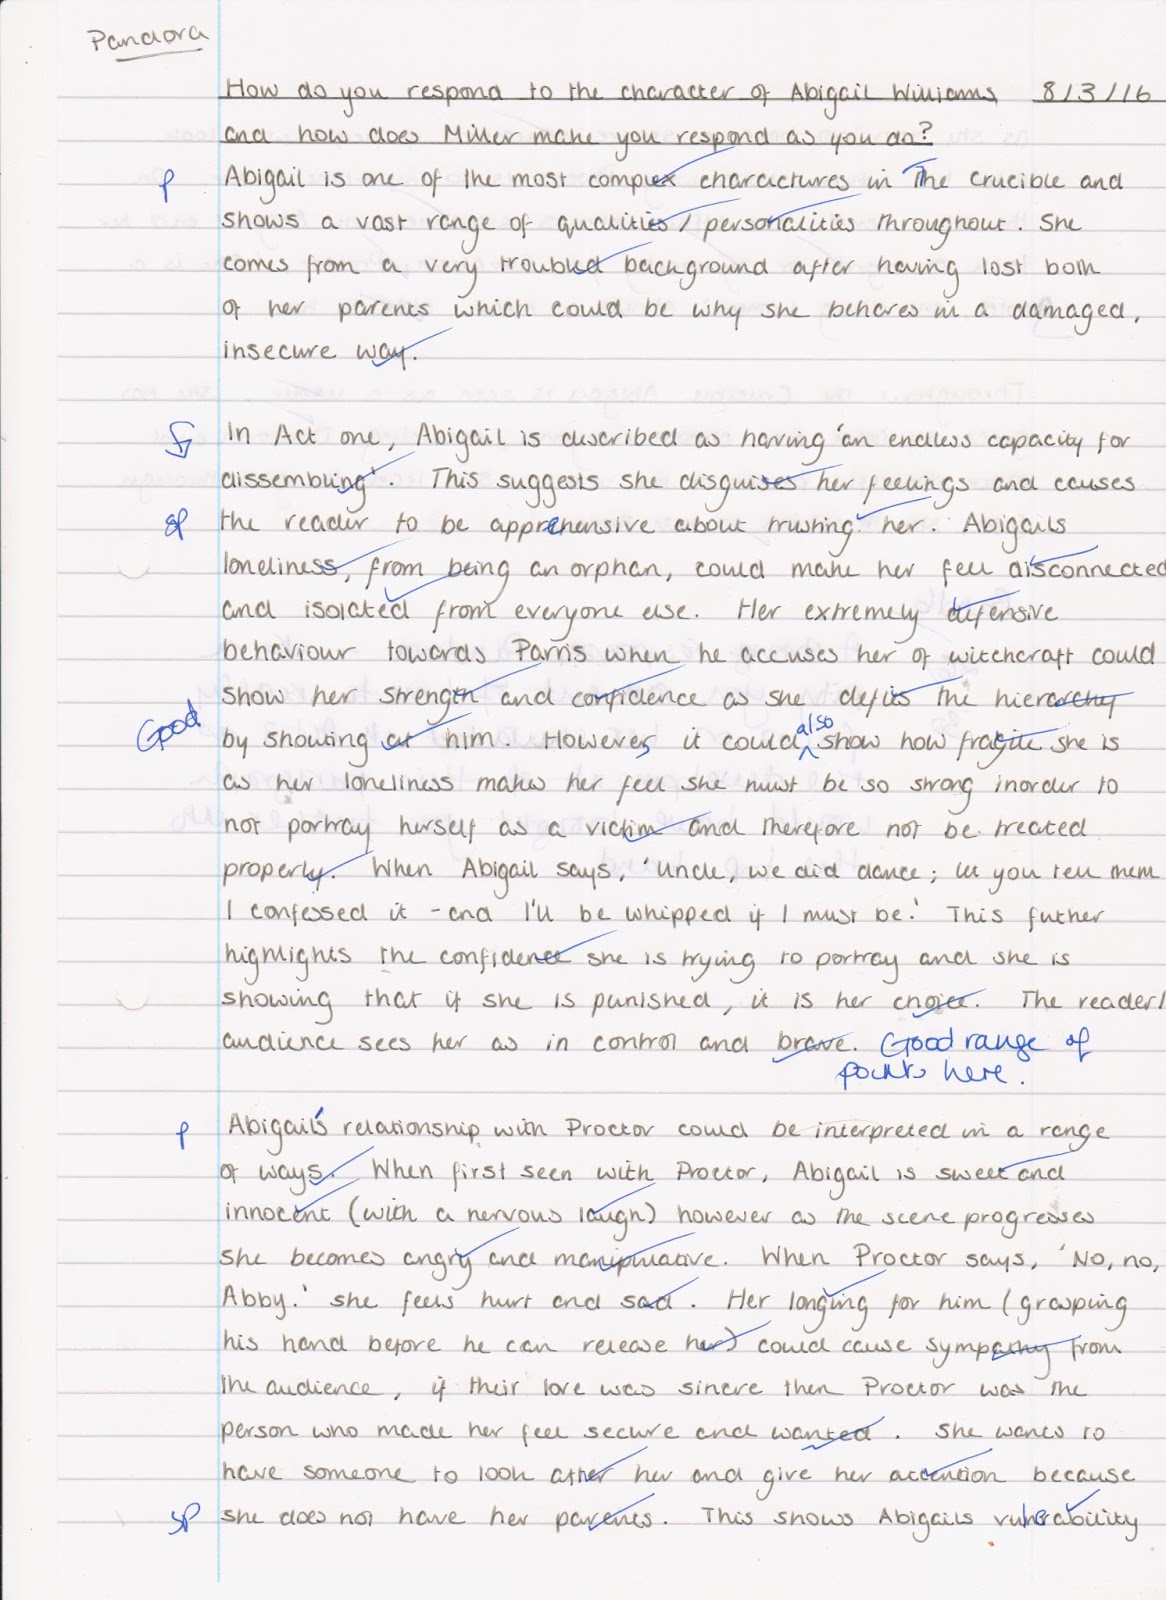 Pandora
How do you respond to the character of Abigail Williams 8/3/16
and how does Miller make you respond as you do?
p Abigail is one of the most complex charactures in The crucible and
shows a vast range of qualities / personalities throughout. She
comes from a very troubled background after having lost both
of her parents which could be why she behaves in a damaged,
insecure way.
In Act one, Abigail is described as having 'an endless capacity for
dissembling'. This suggests she disguises her feelings and causes
sp the reader to be apprehensive about trusting her. Abigails
loneliness, from being an orphan, could make her feel disconnected
and isolated from everyone else. Her extremely defensive
behaviour towards Parris when he accuses her of witchcraft could
show her strength and confidence as she defies the hierarchy
Good by showing at him. However, it could also show how fragile she is
as her loneliness makes her feel she must be so strong inorder to
not portray herself as a victim and therefore not be treated
properly. When Abigail says, 'Uncle, we did dance; let you tell them
I confessed it - and I'll be whipped if I must be.' This futher
highlights the confidence she is trying to portray and she is
showing that if she is punished, it is her choice. The reader/
audience sees her as in control and brave. Good range of
points here.
p Abigail's relationship with Proctor could be interpreted in a range
of ways. When first seen with Proctor, Abigail is sweet and
innocent (with a nervous laugh) however as the scene progresses
she becomes angry and manipulative. When Proctor says, 'No, no,
Abby.' she feels hurt and sad. Her longing for him (grasping
his hand before he can release her) could cause sympathy from
the audience, if their love was sincere then Proctor was the
person who made her feel secure and wanted. She wants to
have someone to look after her and give her attention because
sp she does not have her parents. This shows Abigails vulnerability